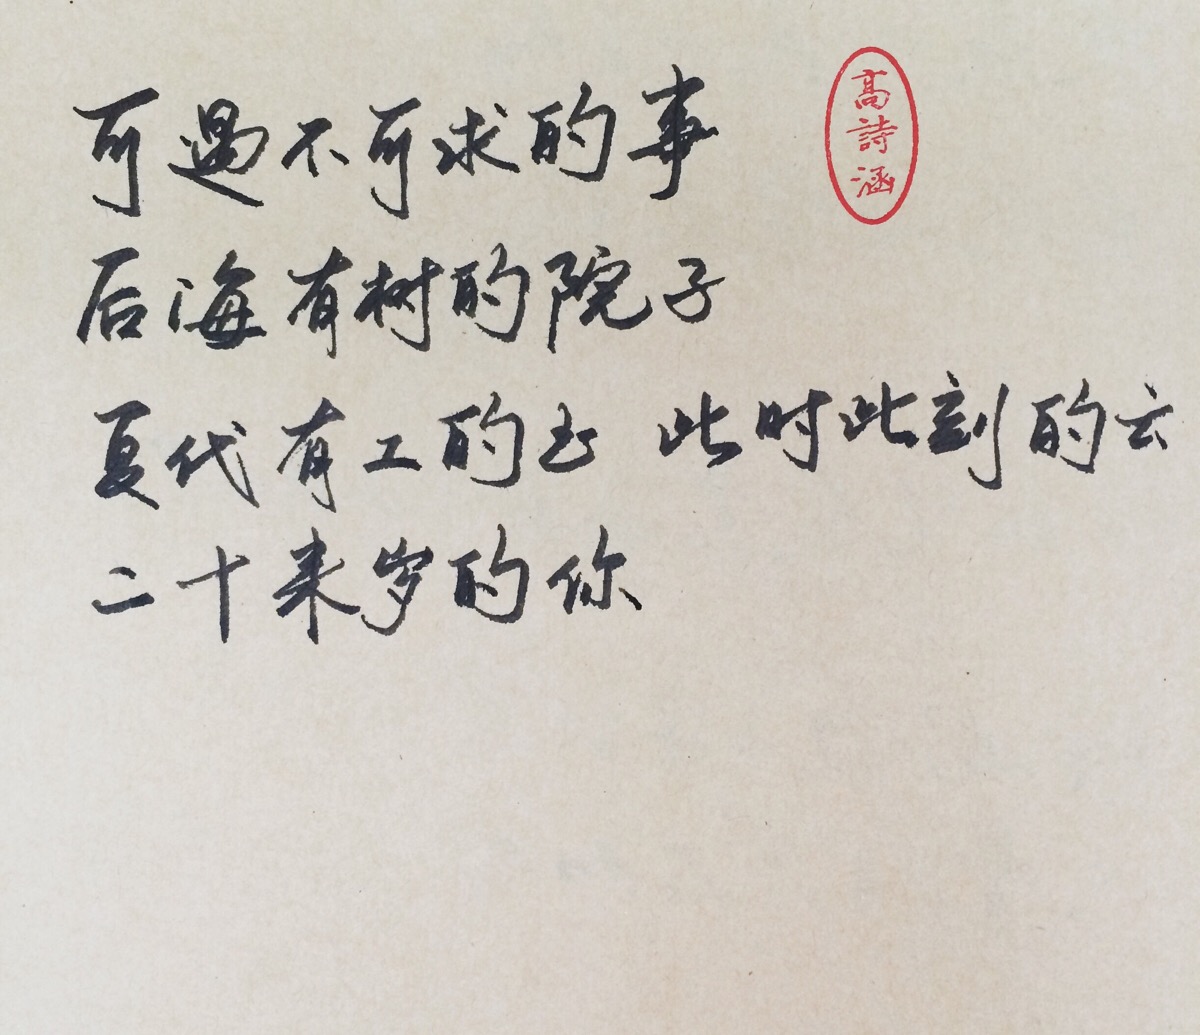 可遇不可求的事
后海有树的院子
夏代有工的玉 此时此刻的云
二十来岁的你
高詩涵